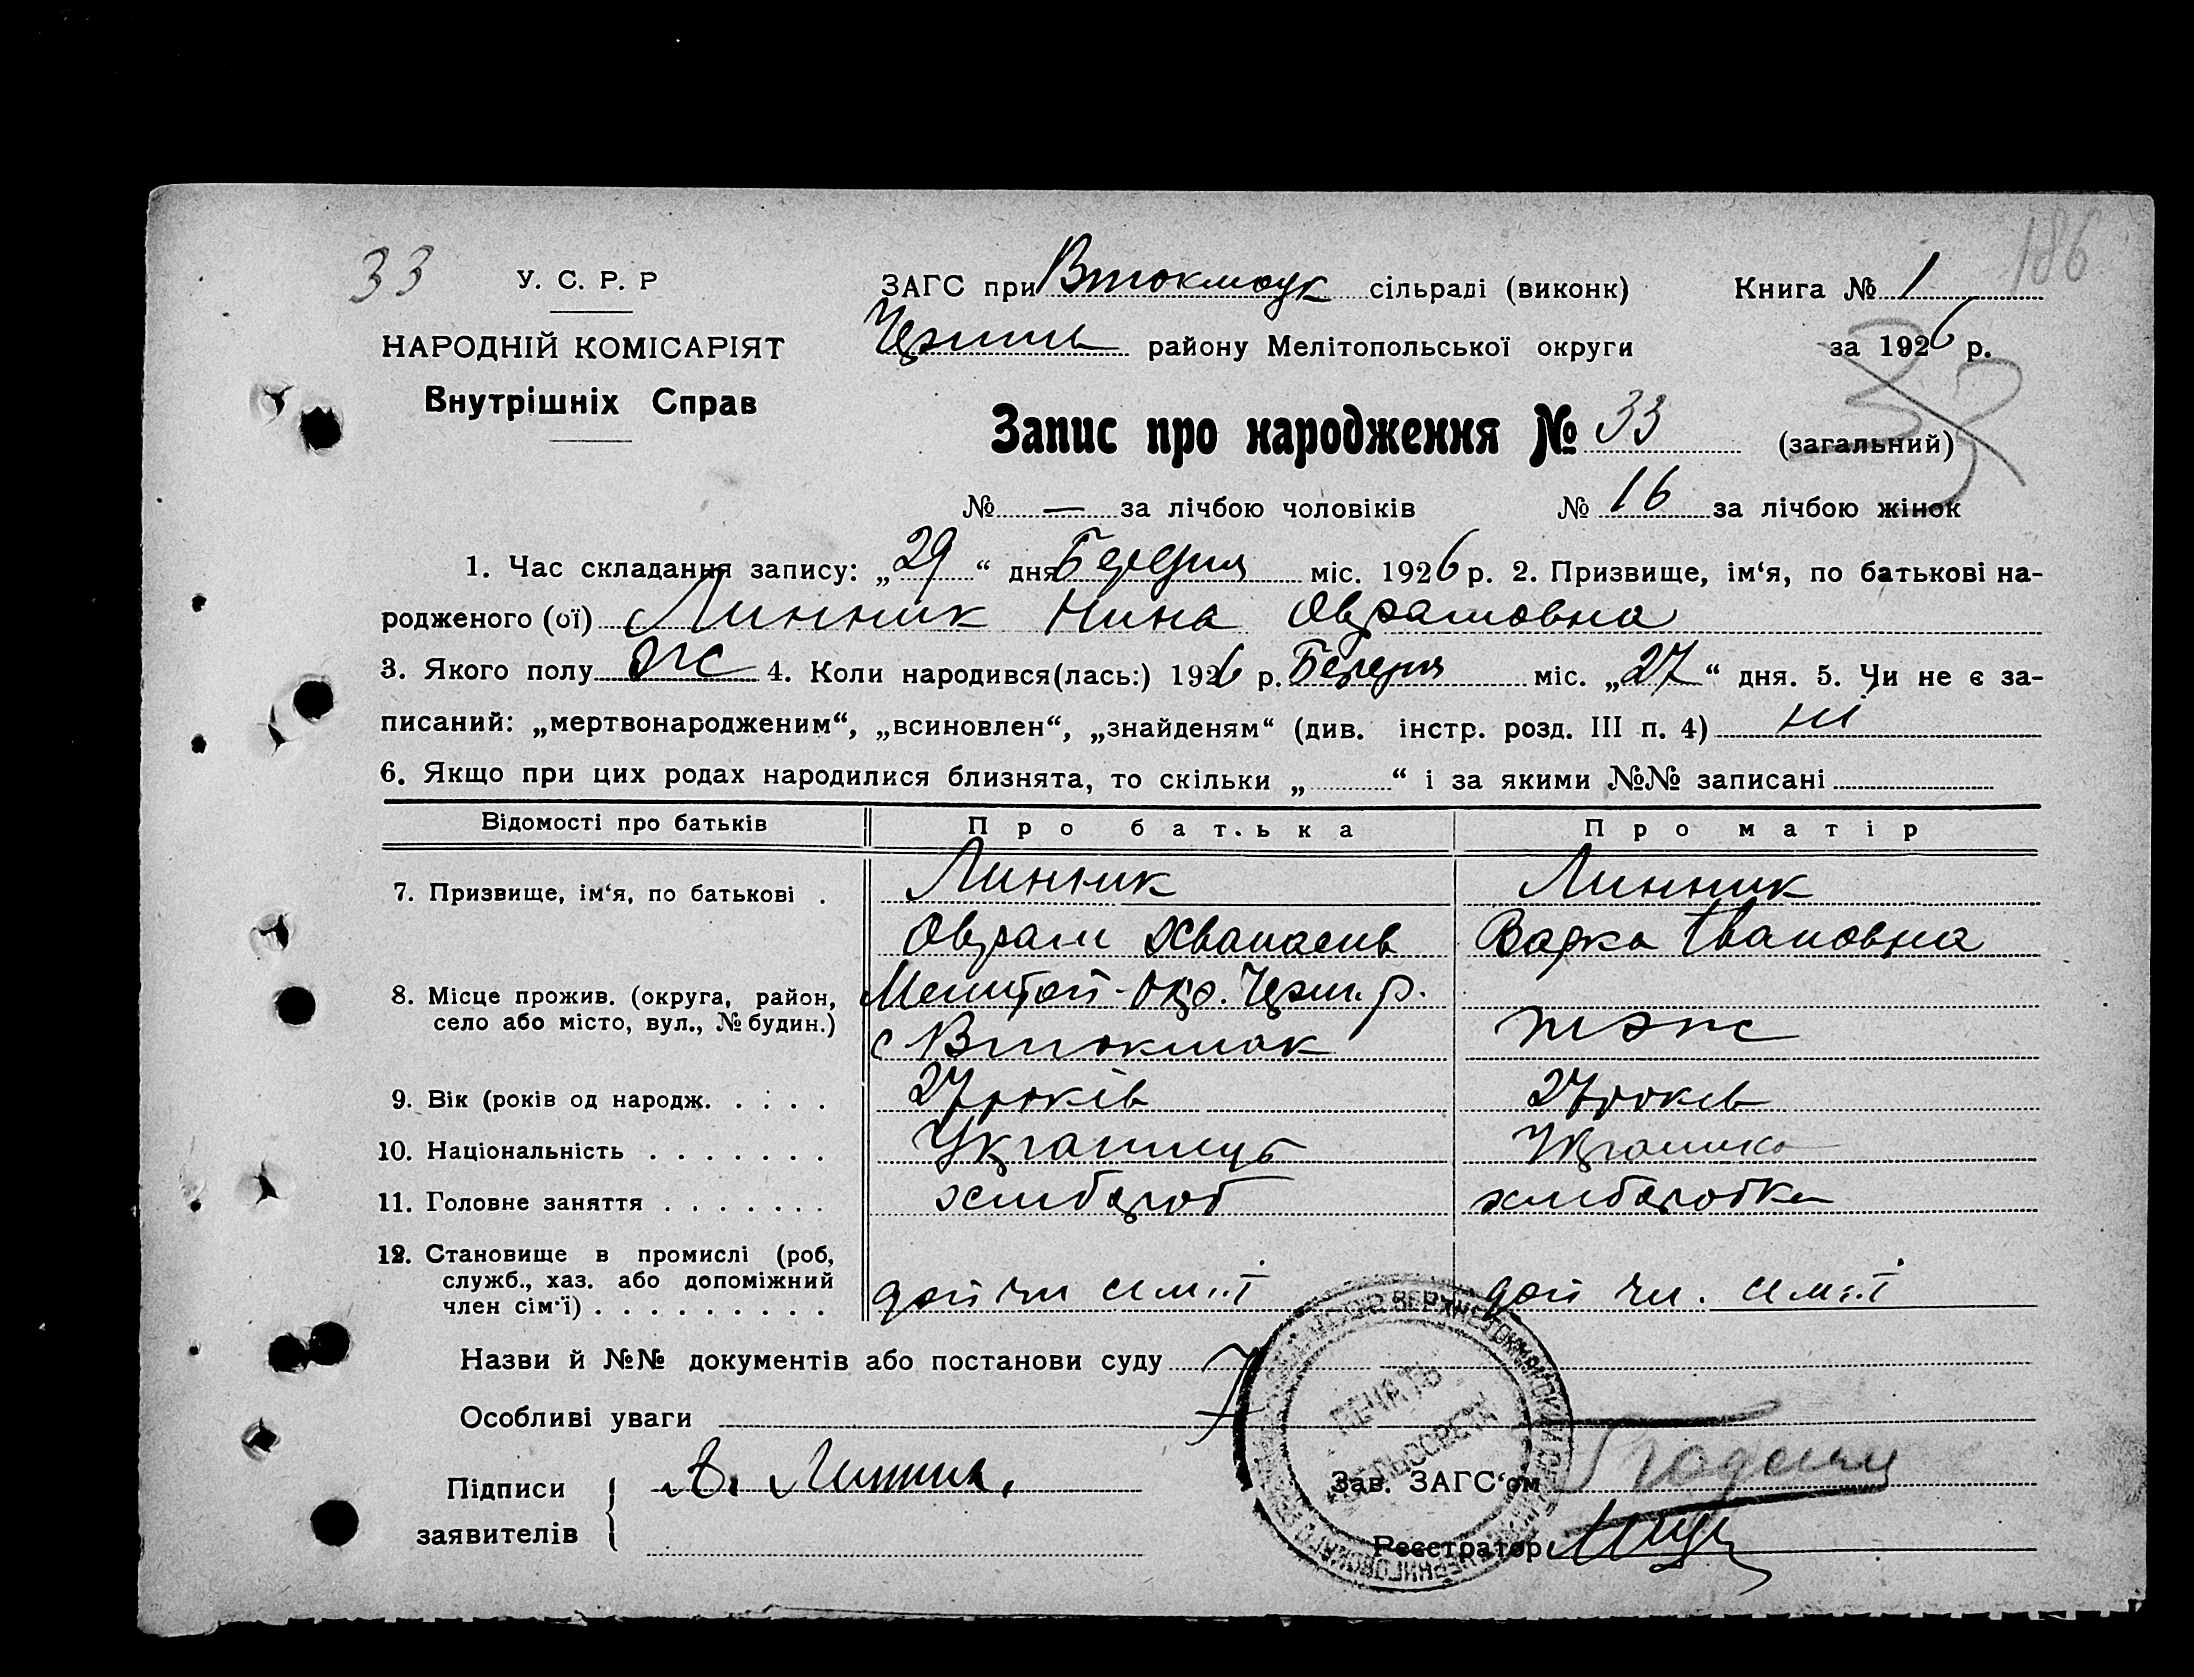 33 У. С. Р. Р ЗАГС при Втокмацк сільраді (виконк) Книга № 1 186
НАРОДНІЙ КОМІСАРІЯТ району Мелітопольської округи за 1926 р.
Внутрішніх Справ
33
Запис про народження № 33 (загальний)
№ — за лічбою чоловіків № 16 за лічбою жінок
1. Час складання запису: „29“ дня Березня міс. 1926 р. 2. Призвище, ім‘я, по батькові на-
родженого (ої) Линник Нина Оврамовна
3. Якого полу ж 4. Коли народився(лась:) 1926 р. Березня міс. „27“ дня. 5. Чи не є за-
писаний: „мертвонародженим“, „всиновлен“, „знайденям“ (див. інстр. розд. III п. 4) ні
6. Якщо при цих родах народилися близнята, то скільки „ “ і за якими №№ записані
Відомості про батьків Про бать ка Про матір
7. Призвище, ім‘я, по батькові . Линник Линник
Оврам Хванасив Варка Ивановна
8. Місце прожив. (округа, район, Мелитоп. окр. Черн. р.
село або місто, вул., № будин.) с Втокмак тэж
9. Вік (років од народж. . . . . 27 років 27 років
10. Національність . . . . . . . Українець Українка
11. Головне заняття . . . . . . . хлибороб хлиборобка
12. Становище в промислі (роб, служб., хаз. або допоміжний
член сім‘ї) . . . . . . . . . доп чл сем.ї доп чл. сем.ї
Назви й №№ документів або постанови суду
Особливі уваги
ПЕЧАТЬ
СЕЛЬСОВЕТА
Підписи А. Линник Зав. ЗАГС‘ом
заявителів Реєстратор